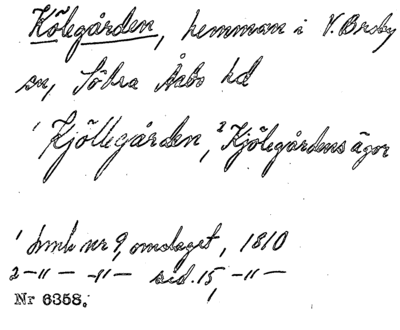 Kölegården, hemman i V. Broby
sn, Södra Åsbo hd
¹ Kjöllegården, ² Kjölegårdens ägor
¹ hmk nr 9, omslaget, 1810
2 —"— —"— sid. 15, —"—
Nr 6358.